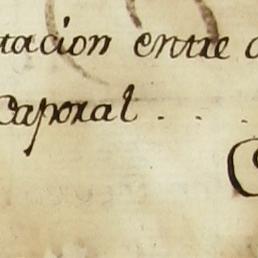 tacion entre
Caporal . . .